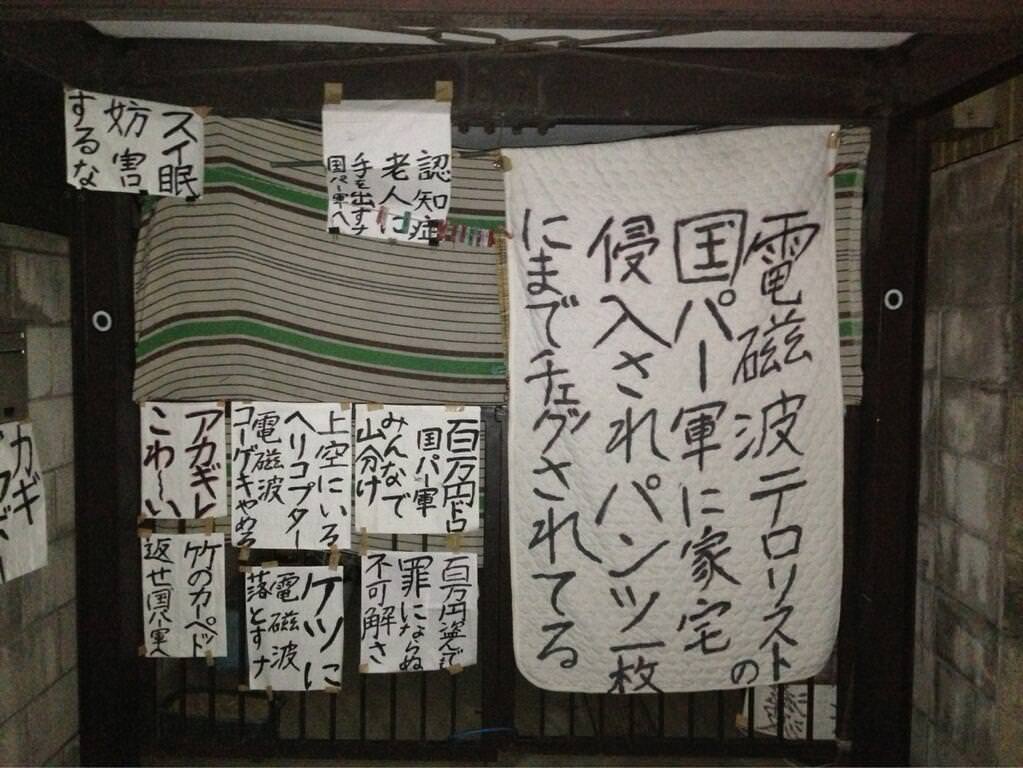 電磁波テロリストの
国パー軍に家宅
侵入されパンツ一枚
にまでチェグされてる
認知症
老人に
手を出すナ
国パー軍へ
スイ眠
妨害
するな
百万円ドロ
国パー軍
みんなで
山分け
上空にいる
ヘリコプター
電磁波
コーゲキやめろ
アカギレ
こわ〜い
百万円盗んで
罪にならぬ
不可解さ
ケツに
電磁波
落とすナ
竹のカーペット
返せ国パー軍へ
カギ